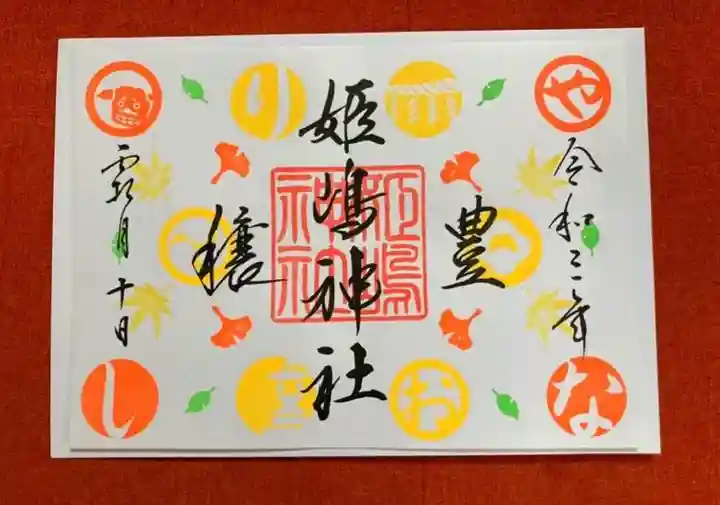 令和三年
豊穣
姫嶋神社
霜月 十日
姫嶋
神社
や
な
お
し